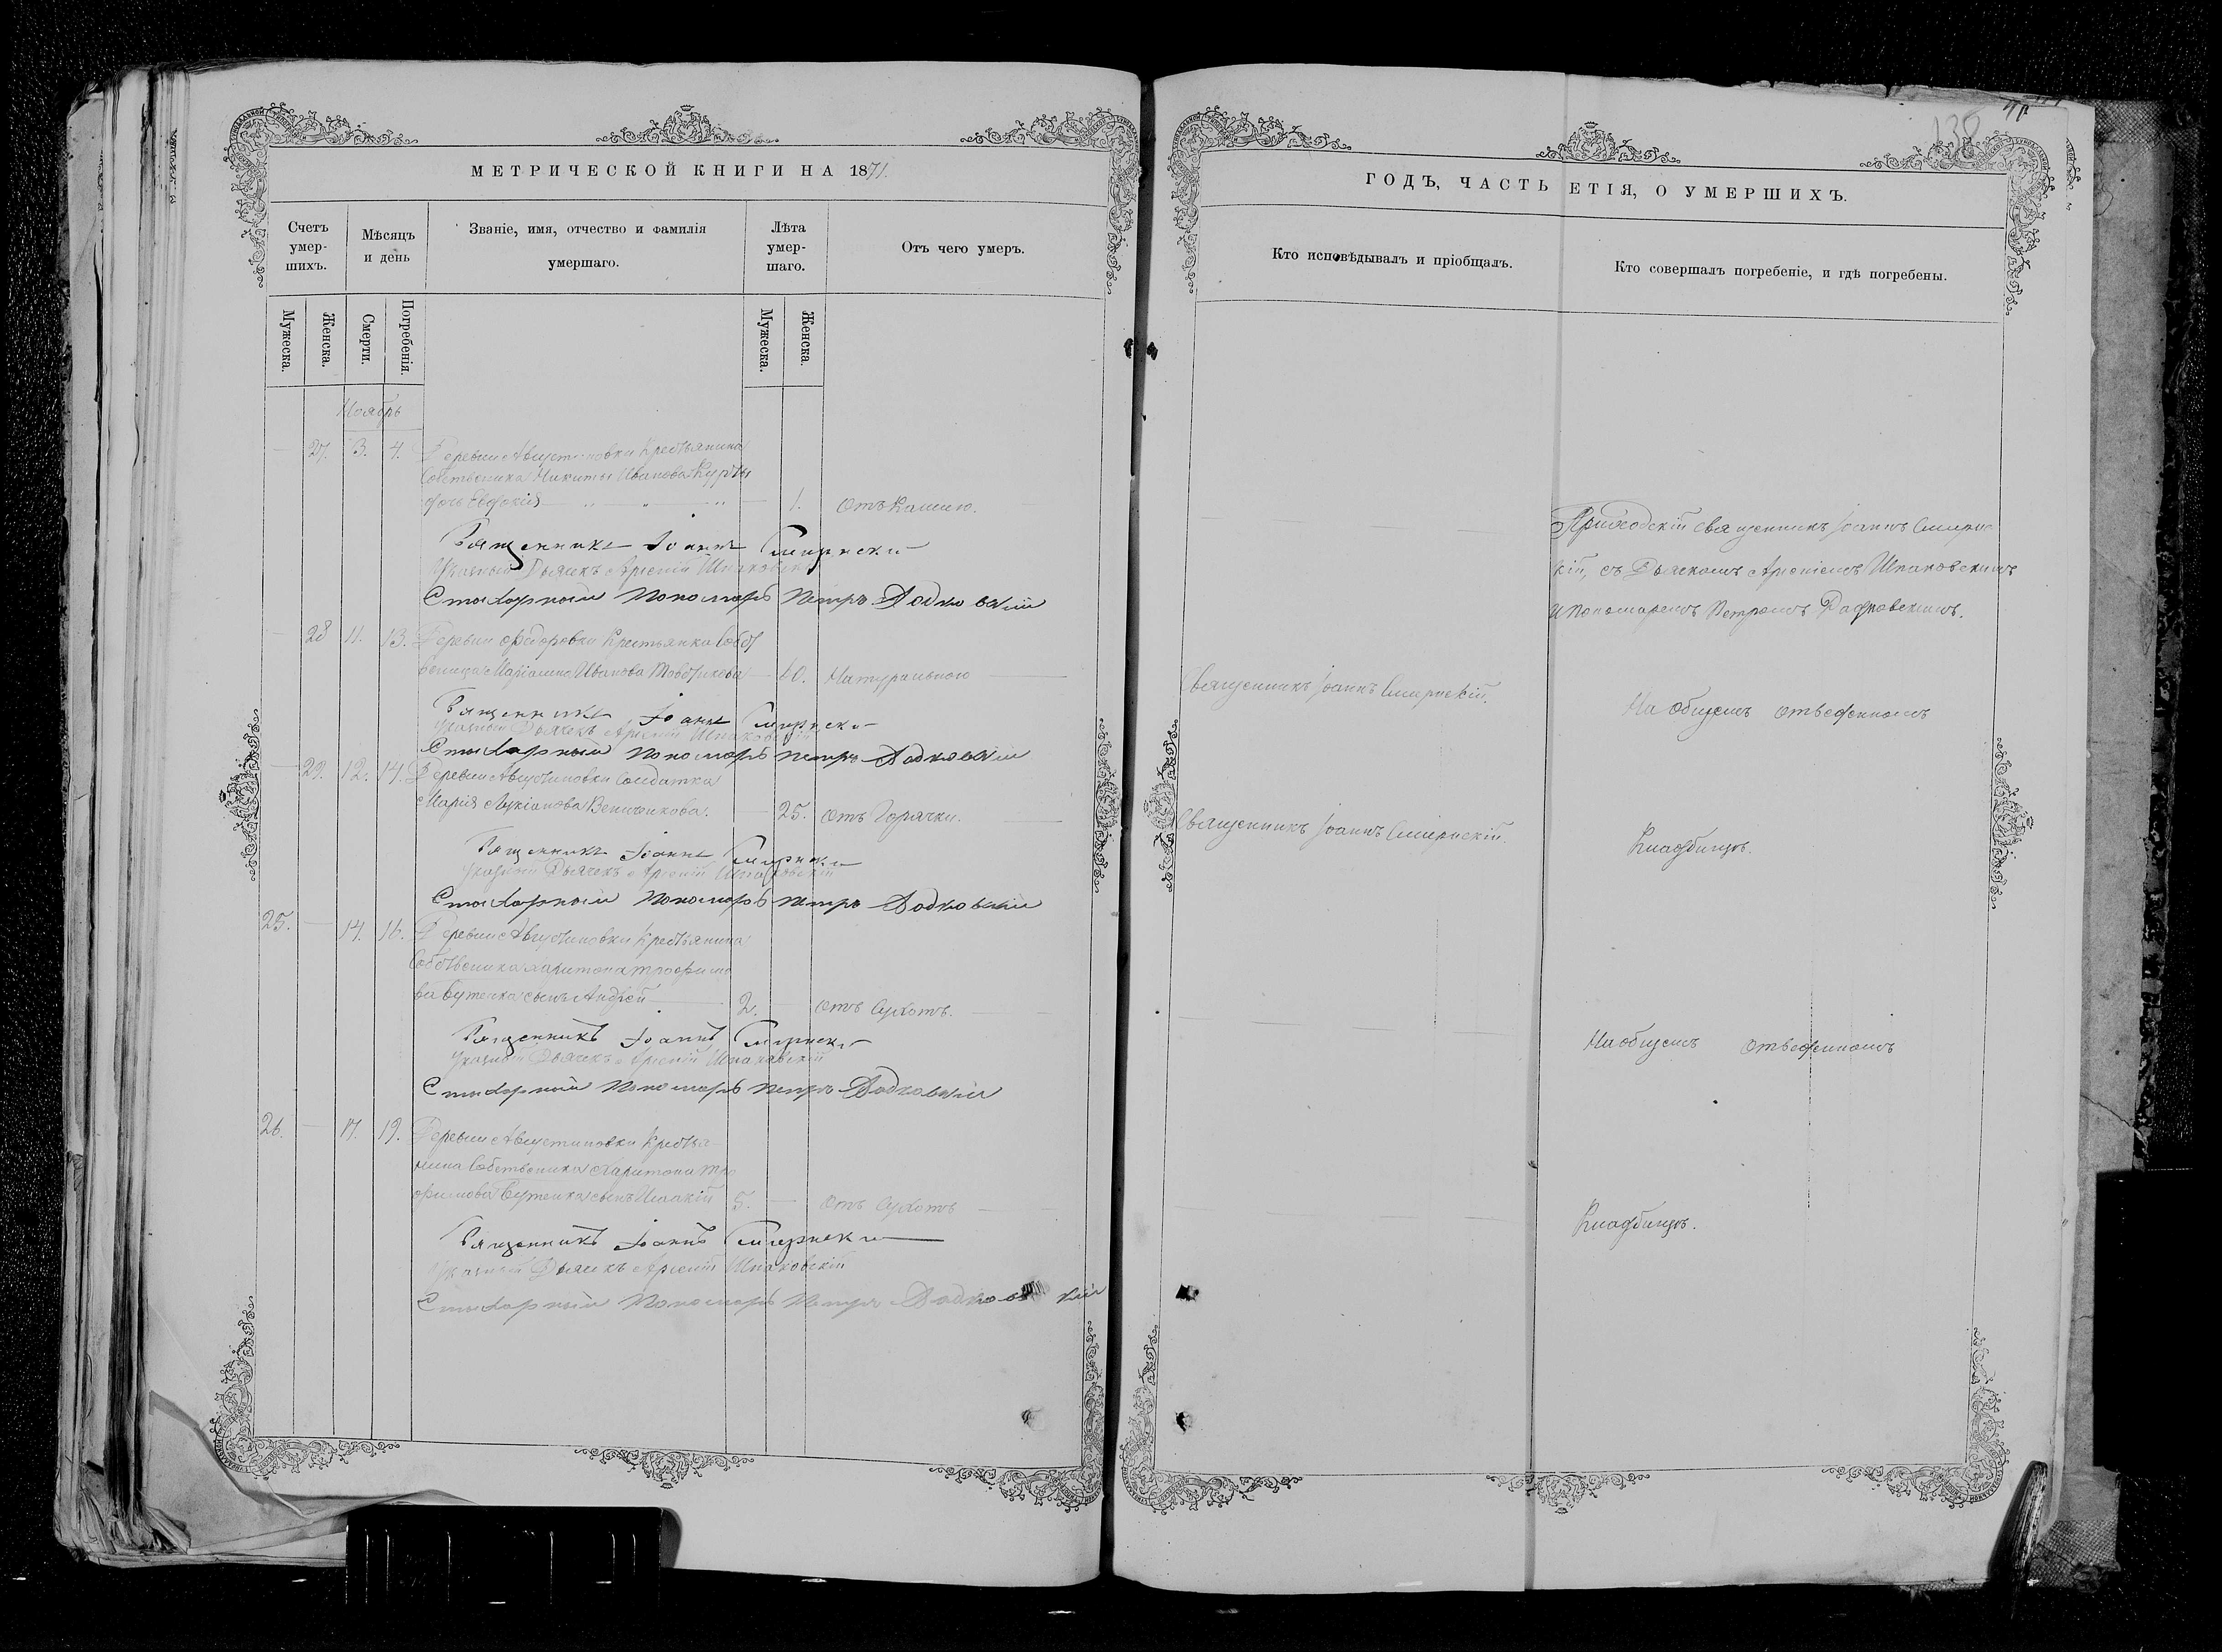 МЕТРИЧЕСКОЙ КНИГИ НА 1871.
Счетъ умер-шихъ.
Мѣсяцъ и день
Званіе, имя, отчество и фамилія умершаго.
Лѣта умер-шаго.
Отъ чего умеръ.
Мужеска.
Женска.
Смерти.
Погребенія.
Мужеска.
Женска.
Ноябрь
27. 3. 4. Деревни Августиновки Крестьянина
Собственика Никиты Иванова
дочь Евдокія 1. Отъ Кашлю.
Священникъ Іоаннъ Смирнскій
Указный Дьячекъ Арсеній Шпаковскій
Стихарный Пономарь Петръ
28 11. 13. Деревни Федоровки Крестьянка Собст
веница Маріамна Иванова 60. Натурально
Священникъ Іоаннъ Смирнскій
Указный Дьячекъ Арсеній Шпаковскій
Стихарный Пономарь Петръ
29. 12. 14. Деревни Августиновки Солдатка
Марія Лукіанова 25. Отъ Горячки.
Священникъ Іоаннъ Смирнскій
Указный Дьячекъ Арсеній Шпаковскій
Стихарный Пономарь Петръ
25. 14. 16. Деревни Августиновки Крестьянина
Собственика Харитона Трофимо
ва Бутенка сынъ Андрей 2. Отъ Сухотъ.
Священникъ Іоаннъ Смирнскій
Указный Дьячекъ Арсеній Шпаковскій
Стихарный Пономарь Петръ
26. 17. 19. Деревни Августиновки Крестья
нина Собственика Харитона Тро
фимова Бутенка сынъ 5. Отъ Сухотъ
Священникъ Іоаннъ Смирнскій
Указный Дьячекъ Арсеній Шпаковскій
Стихарный Пономарь Петръ
138
ГОДЪ, ЧАСТЬ ЕТІЯ, О УМЕРШИХЪ.
Кто исповѣдывалъ и пріобщалъ.
Кто совершалъ погребеніе, и гдѣ погребены.
Приходскій священникъ Іоаннъ Смирнс
кій, съ Дьячкомъ Арсеніемъ Шпаковскимъ
и Пономаремъ Петромъ
Священникъ Іоаннъ Смирнскій.
На общемъ отведенномъ
Священникъ Іоаннъ Смирнскій.
Кладбищѣ.
На общемъ отведенномъ
Кладбищѣ.